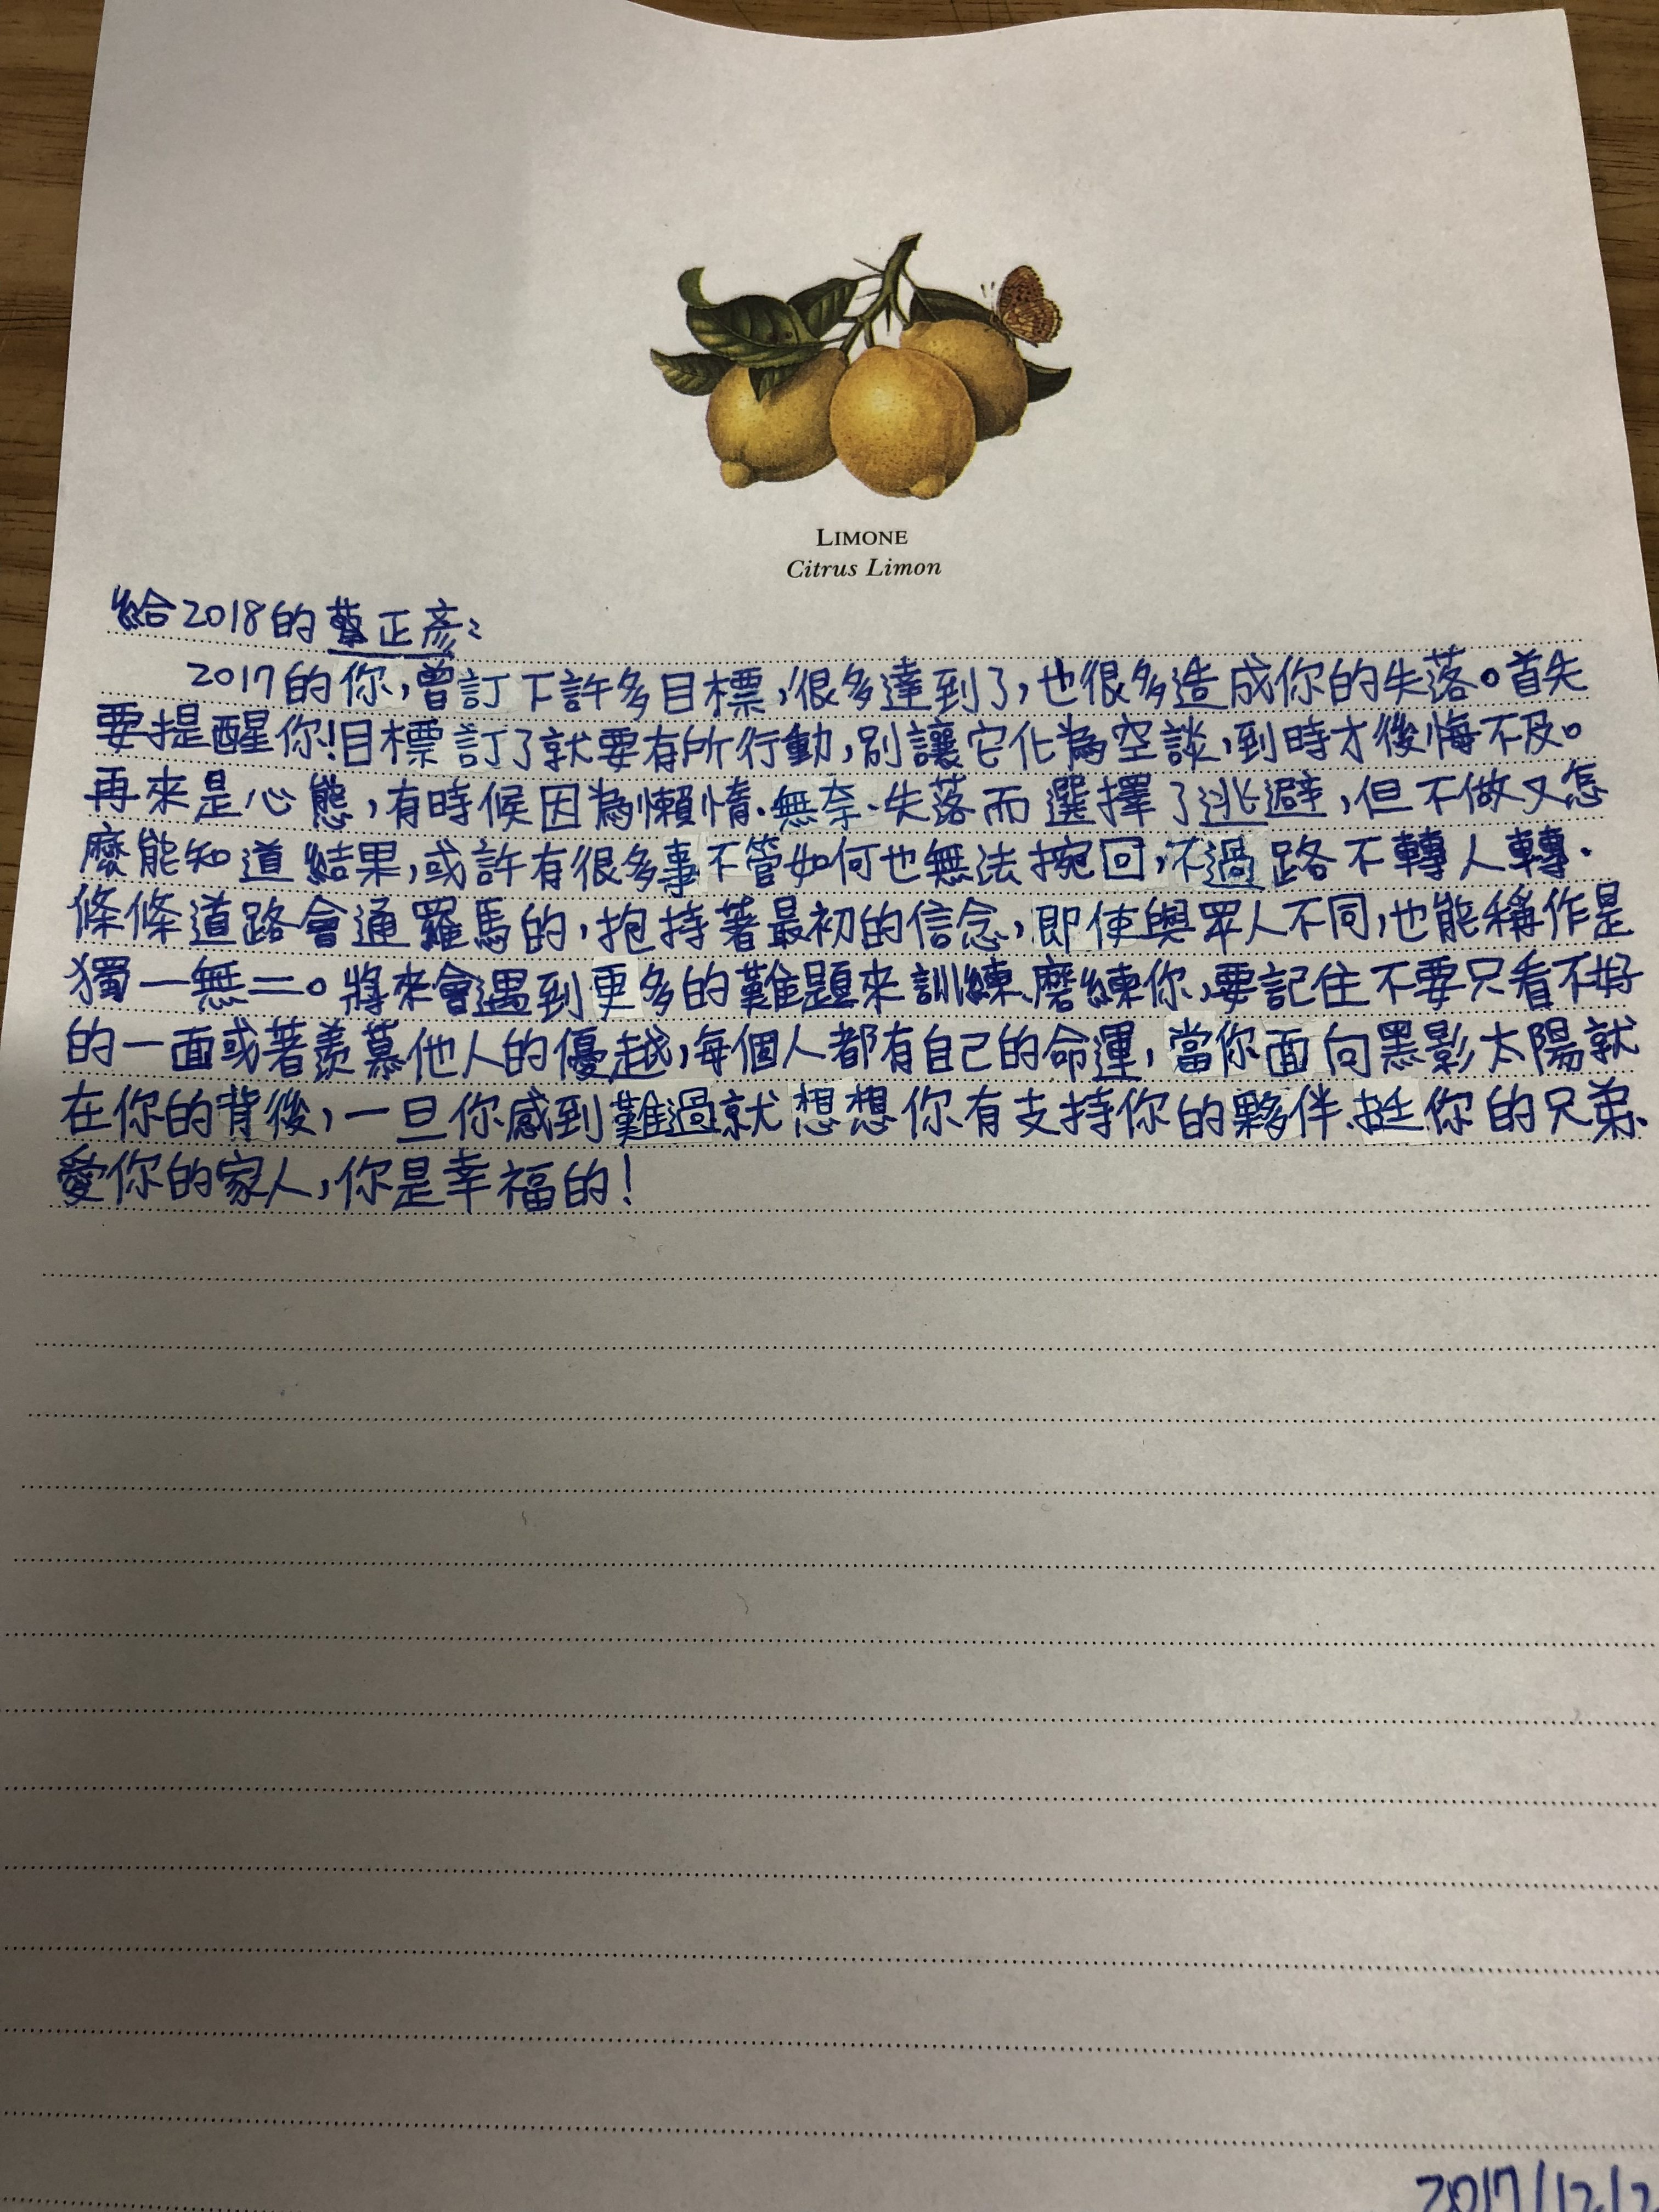 LIMONE
Citrus Limon
給2018的曹正彥:
2017的你,曾訂下許多目標,很多達到了,也很多造成你的失落。首先
要提醒你!目標訂了就要有所行動,別讓它化為空談,到時才後悔不及。
再來是心態,有時候因為懶惰、無奈、失落而選擇了逃避,但不做又怎
麼能知道結果,或許有很多事不管如何也無法挽回,不過路不轉人轉、
條條道路會通羅馬的,抱持著最初的信念,即使與眾人不同,也能稱作是
獨一無二。將來會遇到更多的難題來訓練、磨練你,要記住不要只看不好
的一面或著羨慕他人的優越,每個人都有自己的命運,當你面向黑影太陽就
在你的背後,一旦你感到難過就想想你有支持你的夥伴、挺你的兄弟、
愛你的家人,你是幸福的!
2017/12/2